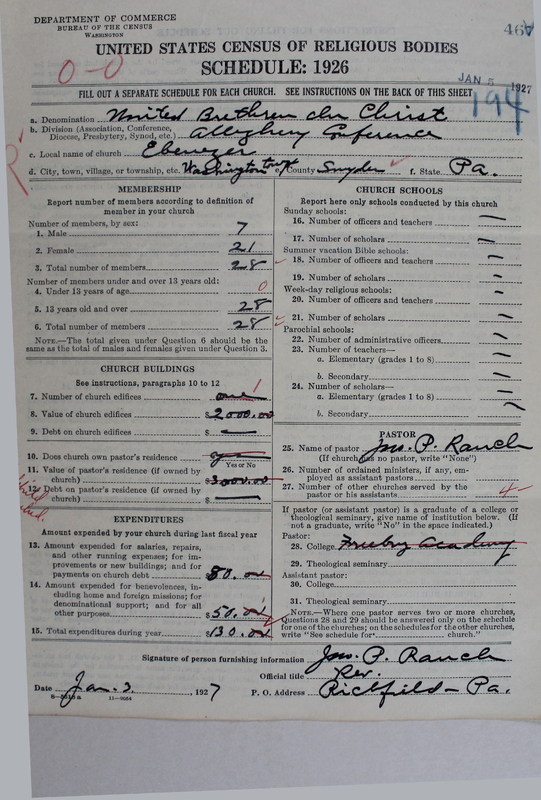 DEPARTMENT OF COMMERCE
BUREAU OF THE CENSUS
WASHINGTON
UNITED STATES CENSUS OF RELIGIOUS BODIES
SCHEDULE: 1926
0-0
JAN 5 1927
194
FILL OUT A SEPARATE SCHEDULE FOR EACH CHURCH. SEE INSTRUCTIONS ON THE BACK OF THIS SHEET
a. Denomination United Brethren in Christ
b. Division (Association, Conference, Diocese, Presbytery, Synod, etc.) Allegheny Conference
c. Local name of church Ebenezer
d. City, town, village, or township, etc. Washington twp e. County Snyder f. State Pa.
MEMBERSHIP
Report number of members according to definition of member in your church
Number of members, by sex:
1. Male 7
2. Female 21
3. Total number of members 28
Number of members under and over 13 years old:
4. Under 13 years of age 0
5. 13 years old and over 28
6. Total number of members 28
NOTE.—The total given under Question 6 should be the same as the total of males and females given under Question 3.
CHURCH BUILDINGS
See instructions, paragraphs 10 to 12
7. Number of church edifices one 1
8. Value of church edifices $2000.00
9. Debt on church edifices $ —
10. Does church own pastor's residence
Yes or No
11. Value of pastor's residence (if owned by church) $3000.00
12. Debt on pastor's residence (if owned by church) $ —
EXPENDITURES
Amount expended by your church during last fiscal year
13. Amount expended for salaries, repairs, and other running expenses; for improvements or new buildings; and for payments on church debt 80.00
14. Amount expended for benevolences, including home and foreign missions; for denominational support; and for all other purposes $50.00
15. Total expenditures during year $130.00
CHURCH SCHOOLS
Report here only schools conducted by this church
Sunday schools:
16. Number of officers and teachers —
17. Number of scholars —
Summer vacation Bible schools:
18. Number of officers and teachers —
19. Number of scholars —
Week-day religious schools:
20. Number of officers and teachers —
21. Number of scholars —
Parochial schools:
22. Number of administrative officers —
23. Number of teachers—
a. Elementary (grades 1 to 8) —
b. Secondary —
24. Number of scholars—
a. Elementary (grades 1 to 8) —
b. Secondary —
PASTOR
25. Name of pastor Jno. P. Rauch
(If church has no pastor, write "None")
26. Number of ordained ministers, if any, employed as assistant pastors
27. Number of other churches served by the pastor or his assistants 4
If pastor (or assistant pastor) is a graduate of a college or theological seminary, give name of institution below. (If not a graduate, write "No" in the space indicated.)
Pastor:
28. College Academy
29. Theological seminary
Assistant pastor:
30. College
31. Theological seminary
NOTE.—Where one pastor serves two or more churches, Questions 28 and 29 should be answered only on the schedule for one of the churches; on the schedules for the other churches, write "See schedule for church."
Signature of person furnishing information Jno. P. Rauch
Official title Rev.
Date Jan. 3, 1927 P. O. Address Richfield - Pa.